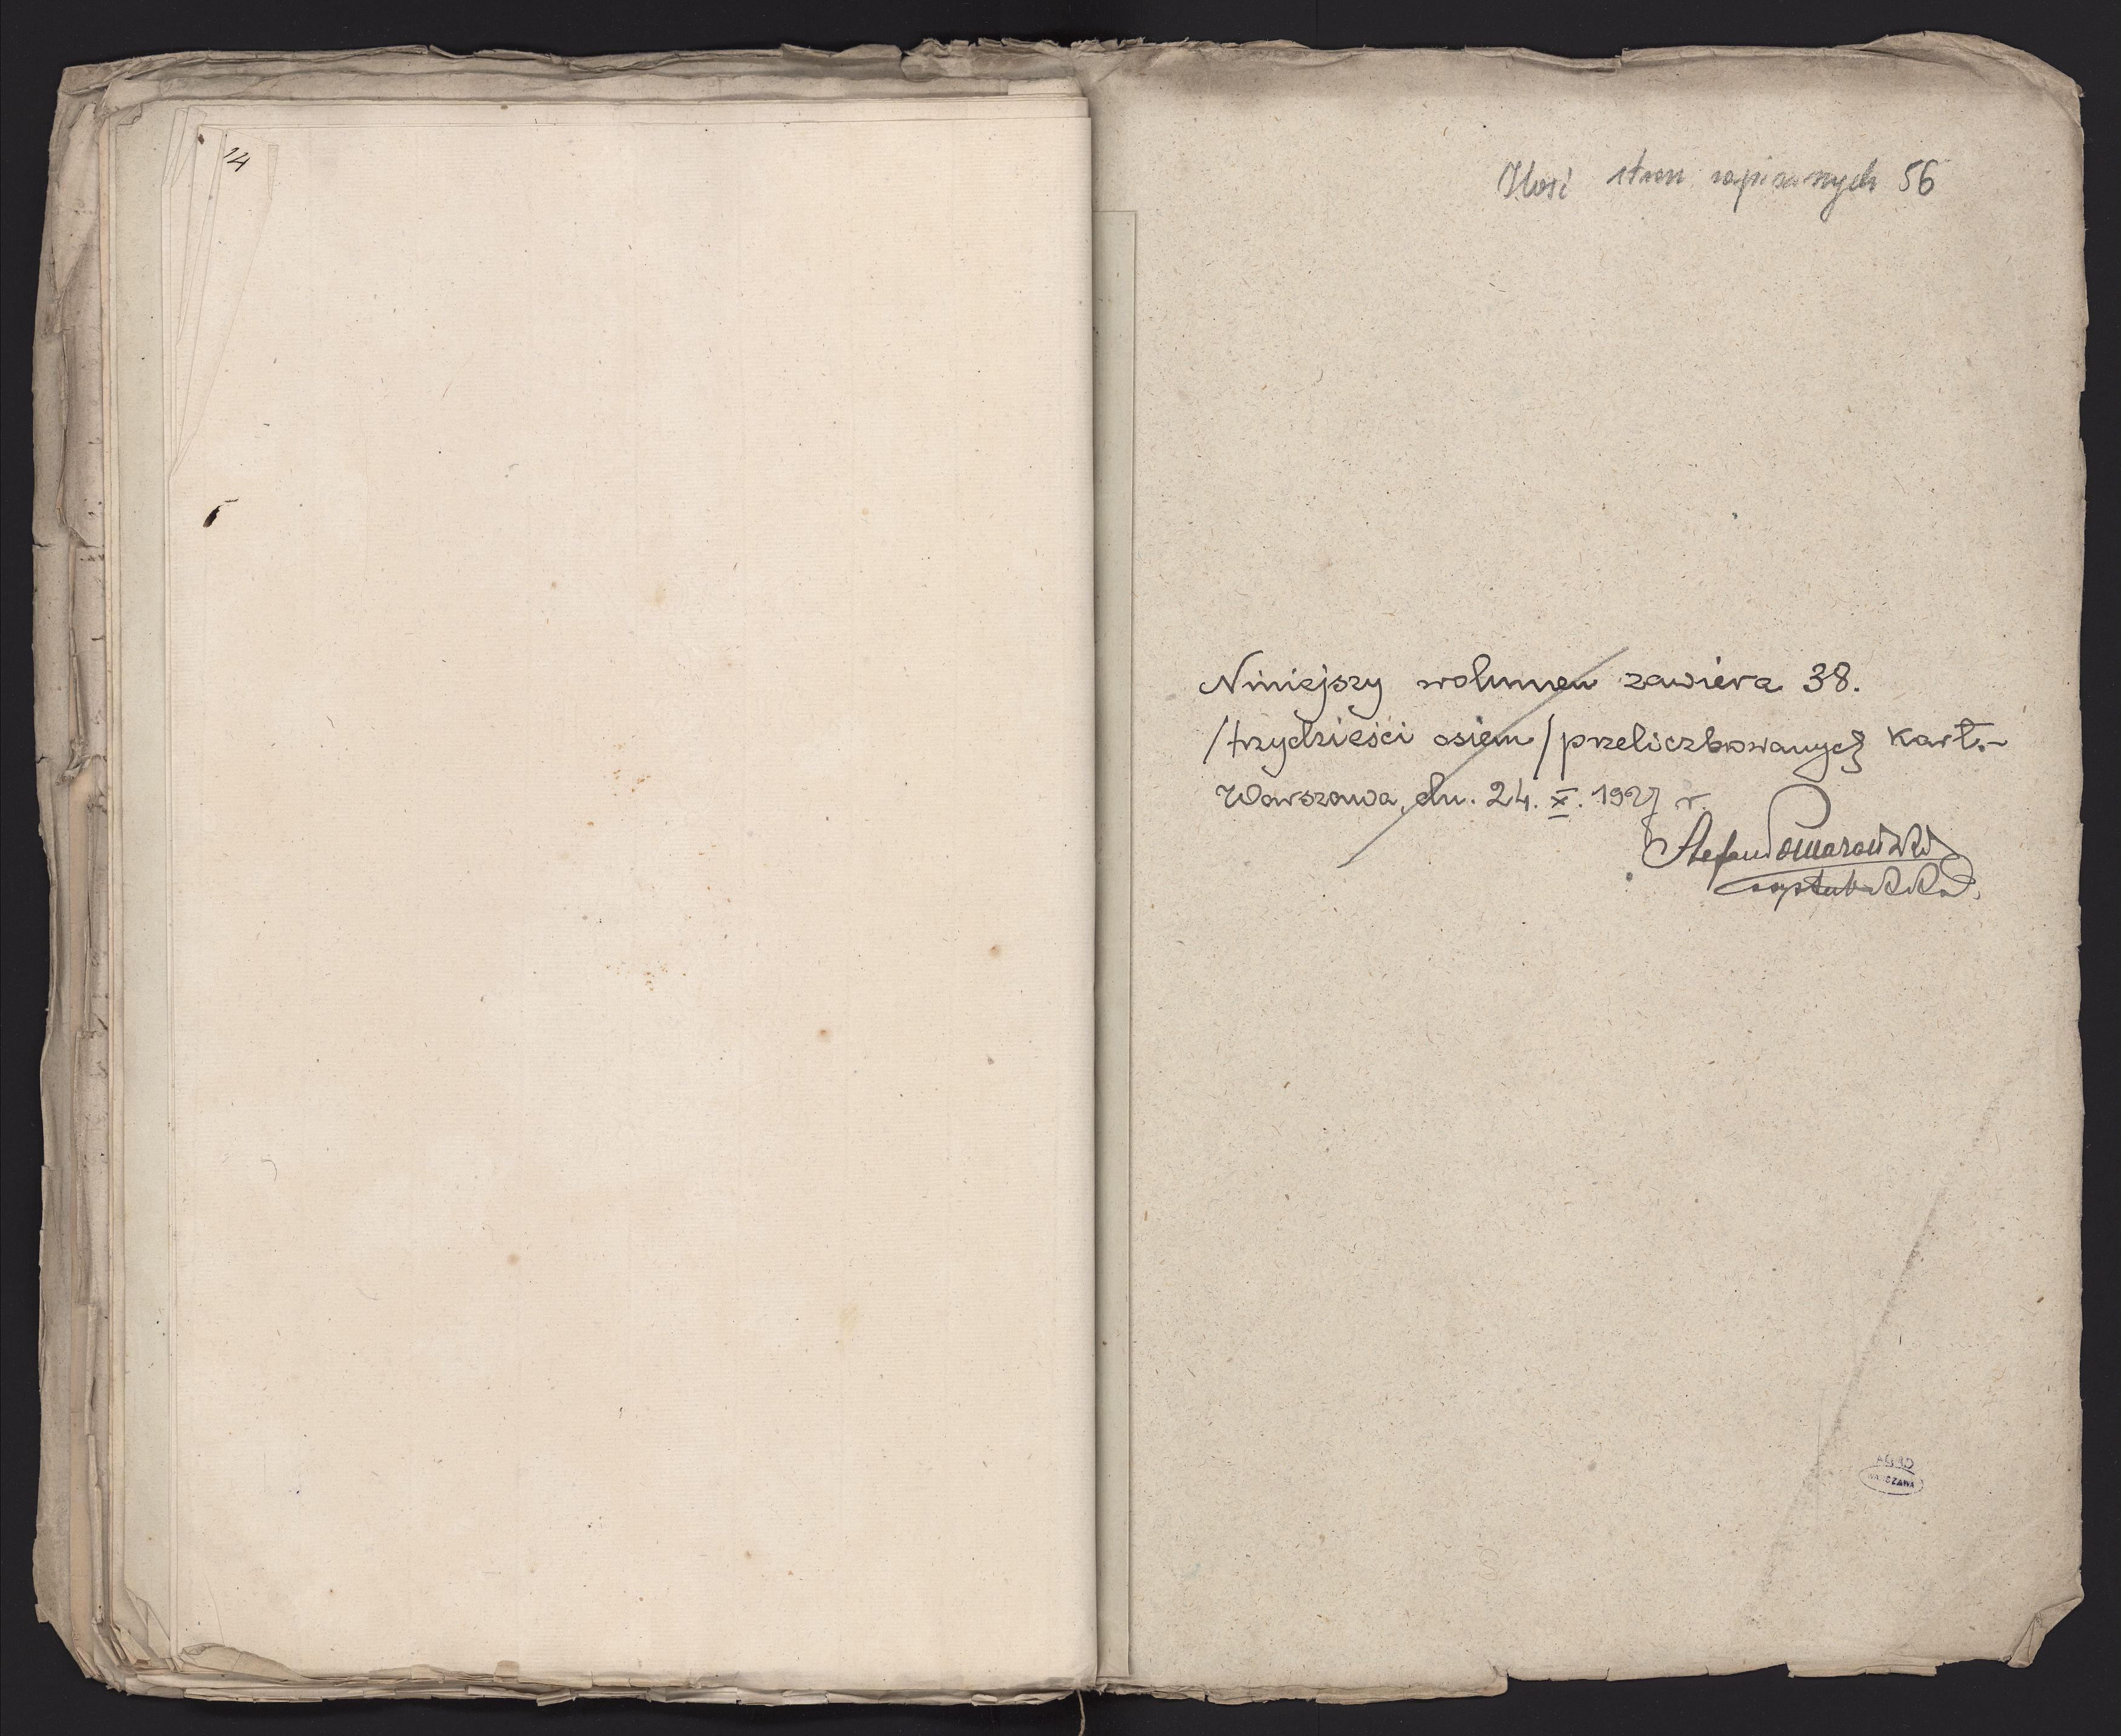 14
Ilość stron zapisanych 56
Niniejszy wolumen zawiera 38.
/trzydzieści osiem/ przeliczbowanych kart.-
Warszawa, dn. 24. X. 1927 r.
Stefan Pomarański
AGAD
WARSZAWA